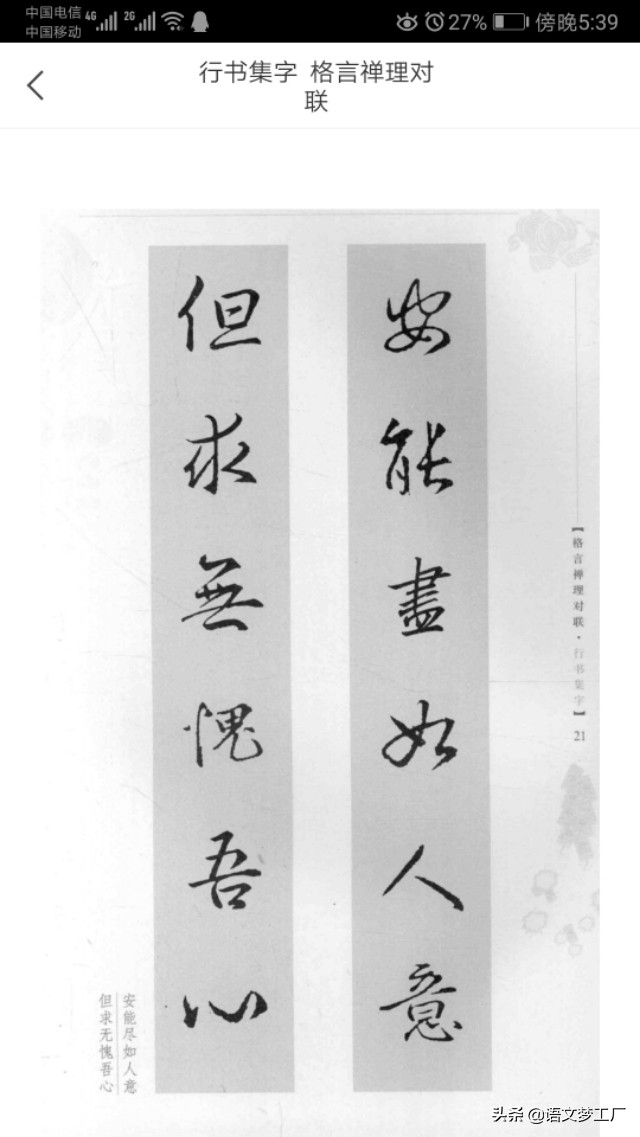 中国电信 4G 2G 27% 傍晚5:39
中国移动
行书集字 格言禅理对
联
安能盡如人意
但求無愧吾心
【格言禅理对联·行书集字】 21
安能尽如人意
但求无愧吾心
头条 @语文梦工厂